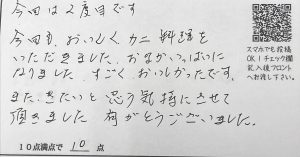 今回は2度目です
今回も、おいしく カニ 料理を
いただきました。おなかいっぱいに
なりました。すごくおいしかったです。
また、きたいと 思う気持にさせて
頂きました 有がとうございました。
10点満点で 10 点
スマホでも投稿
OK!チェック欄
記入後フロント
へお渡し下さい。